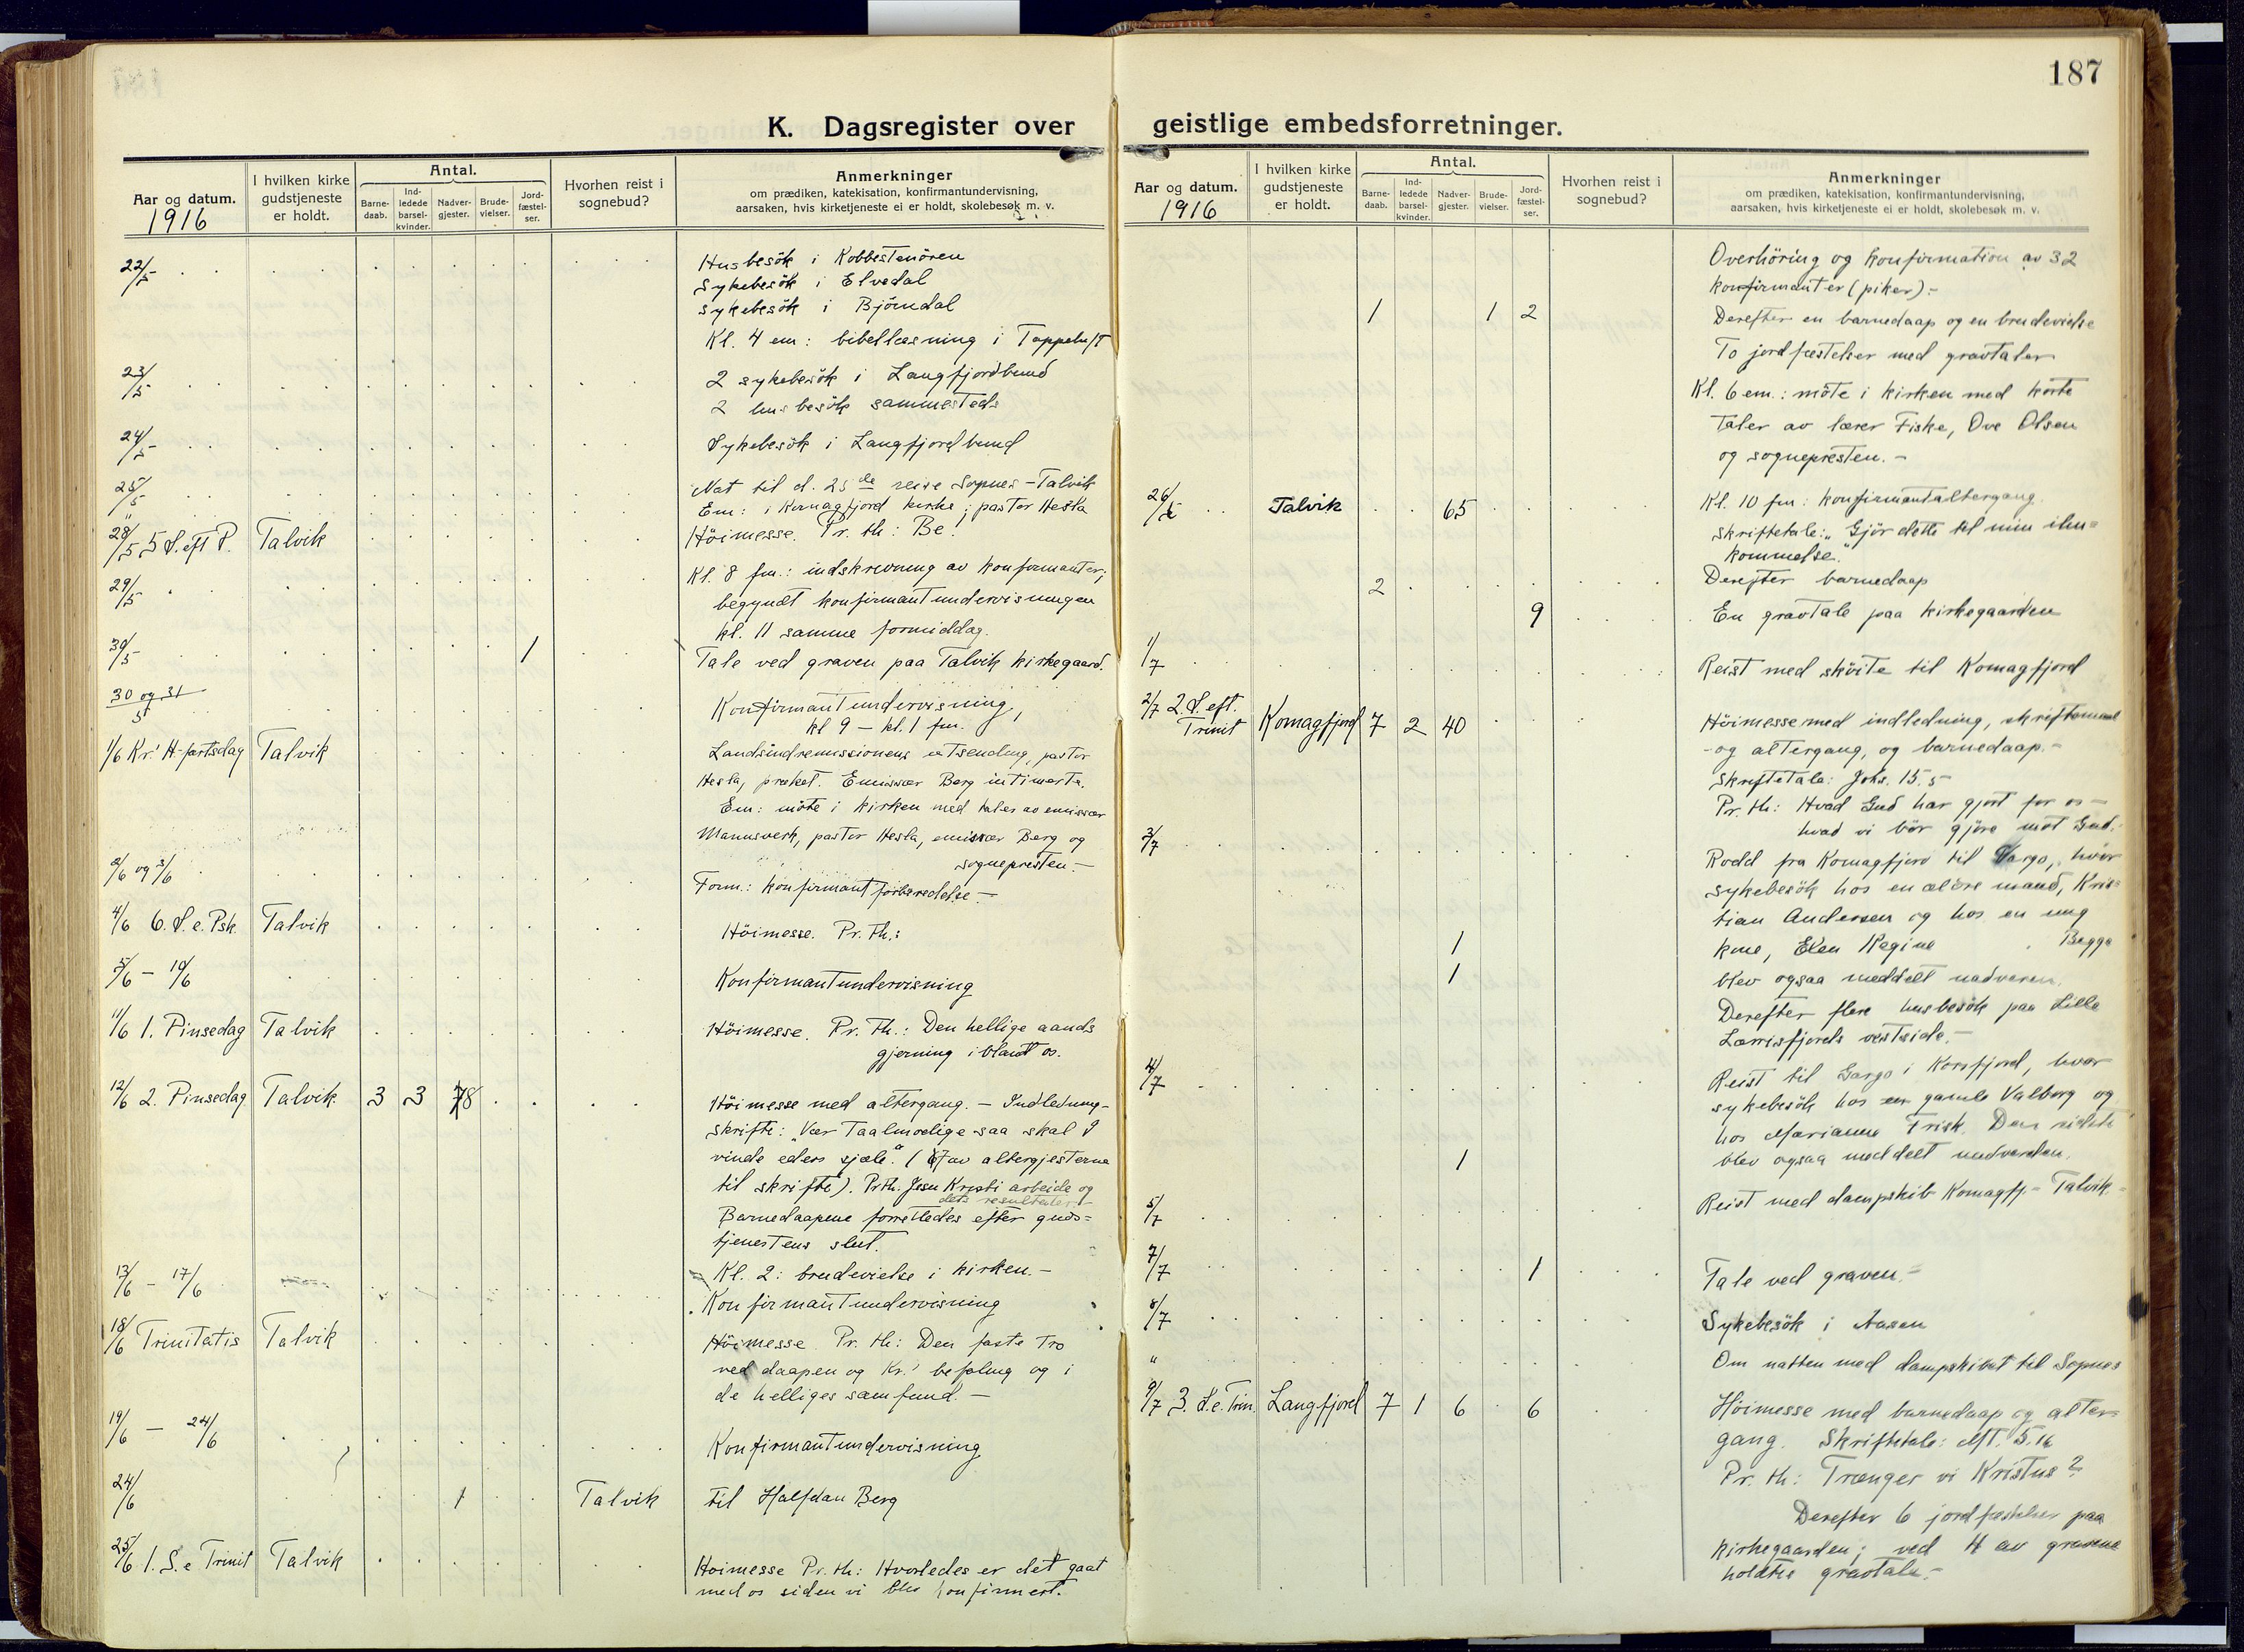 187
K. Dagsregister over geistlige embedsforretninger.
Aar og datum.
1916
I hvilken kirke gudstjeneste er holdt.
Antal.
Barne-daab.
Ind-ledede barsel-kvinder.
Nadver-gjester.
Brude-vielser.
Jord-fæstel-ser.
Hvorhen reist i sognebud?
Anmerkninger
om prædiken, katekisation, konfirmantundervisning,
aarsaken, hvis kirketjeneste ei er holdt, skolebesøk m. v.
22/5 Husbesök i Kobbestenören
Sykebesök i Elvedal
Sykebesök i Björndal
Kl. 4 em: bibellæsning i Toppeluft
23/5 2 sykebesök i Langfjordbund
2 husbesök sammesteds
24/5 Sykebesök i Langfjordbund
25/5 Nat til d. 25de reise Sopnes - Talvik
" Em: i Komagfjord kirke; pastor Hesla
28/5 5 S. eft P. Talvik Höimesse. Pr. th: Be!
29/5 Kl. 8 fm.: indskrivning av konfirmanter;
begyndt konfirmantundervisningen
kl. 11 samme formiddag.
30/5 1 Tale ved graven paa Talvik kirkegaard.
30 og 31/5 Konfirmantundervisning,
kl 9 - kl. 1 fm.
1/6 Kr. H-fartsdag Talvik Landsindremissionens utsending, pastor
Hesla, præket. Emissær Berg intimerte.
Em: möte i kirken med taler av emissær
Mannsverk, pastor Hesla, emissær Berg og
sognepresten. -
2/6 og 3/6 Form.: konfirmantforberedelse. -
4/6 6. S. e. Psk. Talvik Höimesse. Pr. Th.:
5/6 - 10/6 Konfirmantundervisning
11/6 1. Pinsedag Talvik Höimesse. Pr. Th.: Den hellige aands
gjerning iblandt os.
12/6 2. Pinsedag Talvik 3 3 78 Höimesse med altergang. - Indledning-
skrifte: "Vær Taalmodige saa skal I
vinde eders sjæle." (67 av altergjesterne
til skrifte). Pr. th. Jesu Kristi arbeide og
dets resultater. -
Barnedaapene forrettedes efter guds=
tjenestens slut.
Kl. 2: brudevielse i kirken. -
13/6 - 17/6 Konfirmantundervisning
18/6 Trinitatis Talvik Höimesse Pr. th: Den faste Tro
ved daapen og Kr.' befaling og i
de helliges samfund. -
19/6 - 24/6 Konfirmantundervisning
24/6 1 Talvik til Halfdan Berg
25/6 1. S. e Trinit Talvik Höimesse Pr. th: Hvorledes er det gaat
med os siden vi blev konfirmert.
Aar og datum.
1916
I hvilken kirke gudstjeneste er holdt.
Antal.
Barne-daab.
Ind-ledede barsel-kvinder.
Nadver-gjester.
Brude-vielser.
Jord-fæstel-ser.
Hvorhen reist i sognebud?
Anmerkninger
om prædiken, katekisation, konfirmantundervisning,
aarsaken, hvis kirketjeneste ei er holdt, skolebesøk m. v.
Overhöring og konfirmation av 32
konfirmanter (piker). -
1 1 2 Derefter en barnedaap og en brudevielse
To jordfæstelser med gravtaler
Kl. 6 em.: möte i kirken med korte
Taler av lærer Fiske, Ove Olsen
og sognepresten. -
26/6 Talvik 65 Kl. 10 fm: konfirmantaltergang.
Skriftetale: "Gjör dette til min ihu=
kommelse."
2 Derefter barnedaap
9 En gravtale paa kirkegaarden
1/7 Reist med sköite til Komagfjord
2/7 2. S. eft. Trinit Komagfjord 7 2 40 Höimesse med indledning, skriftemaal
- og altergang, og barnedaap. -
Skriftetale: Joh. 15. 5
Pr. th: Hvad Gud har gjort for os -
hvad vi bör gjöre mot Gud.
3/7 Rodd fra Komagfjord til Gargo, hvor
sykebesök hos en ældre mand, Kris=
tian Andersen og hos en ung
1 kone, Elen Regine Begge
1 blev ogsaa meddelt nadveren.
Derefter flere husbesök paa Lille
Lærrisfjords vestside. -
4/7 Reist til Gargo i Korsfjord, hvor
sykebesök hos en gamle Valborg og
hos Marianne Frisk. Den sidste
1 blev ogsaa meddelt nadverden.
5/7 Reist med dampskib Komagfj. - Talvik. -
7/7 1 Tale ved graven. -
8/7 Sykebesök i Aasen
" Om natten med dampskibet til Sopnes
9/7 3. S. e. Trin. Langfjord 7 1 6 6 Höimesse med barnedaap og alter-
gang. Skriftetale: Mt. 5. 16
Pr. th: Trænger vi Kristus?
Derefter 6 jordfæstelser paa
kirkegaarden; ved 4 av gravene
holdtes gravtale. -